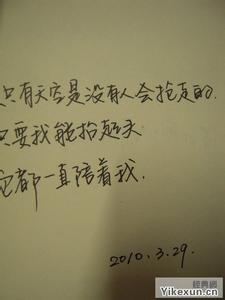 只有天空是没有人会抢走的.
只要我能抬起头
它都一直陪着我.
2010.3.29.
經典網
Yikexun.cn